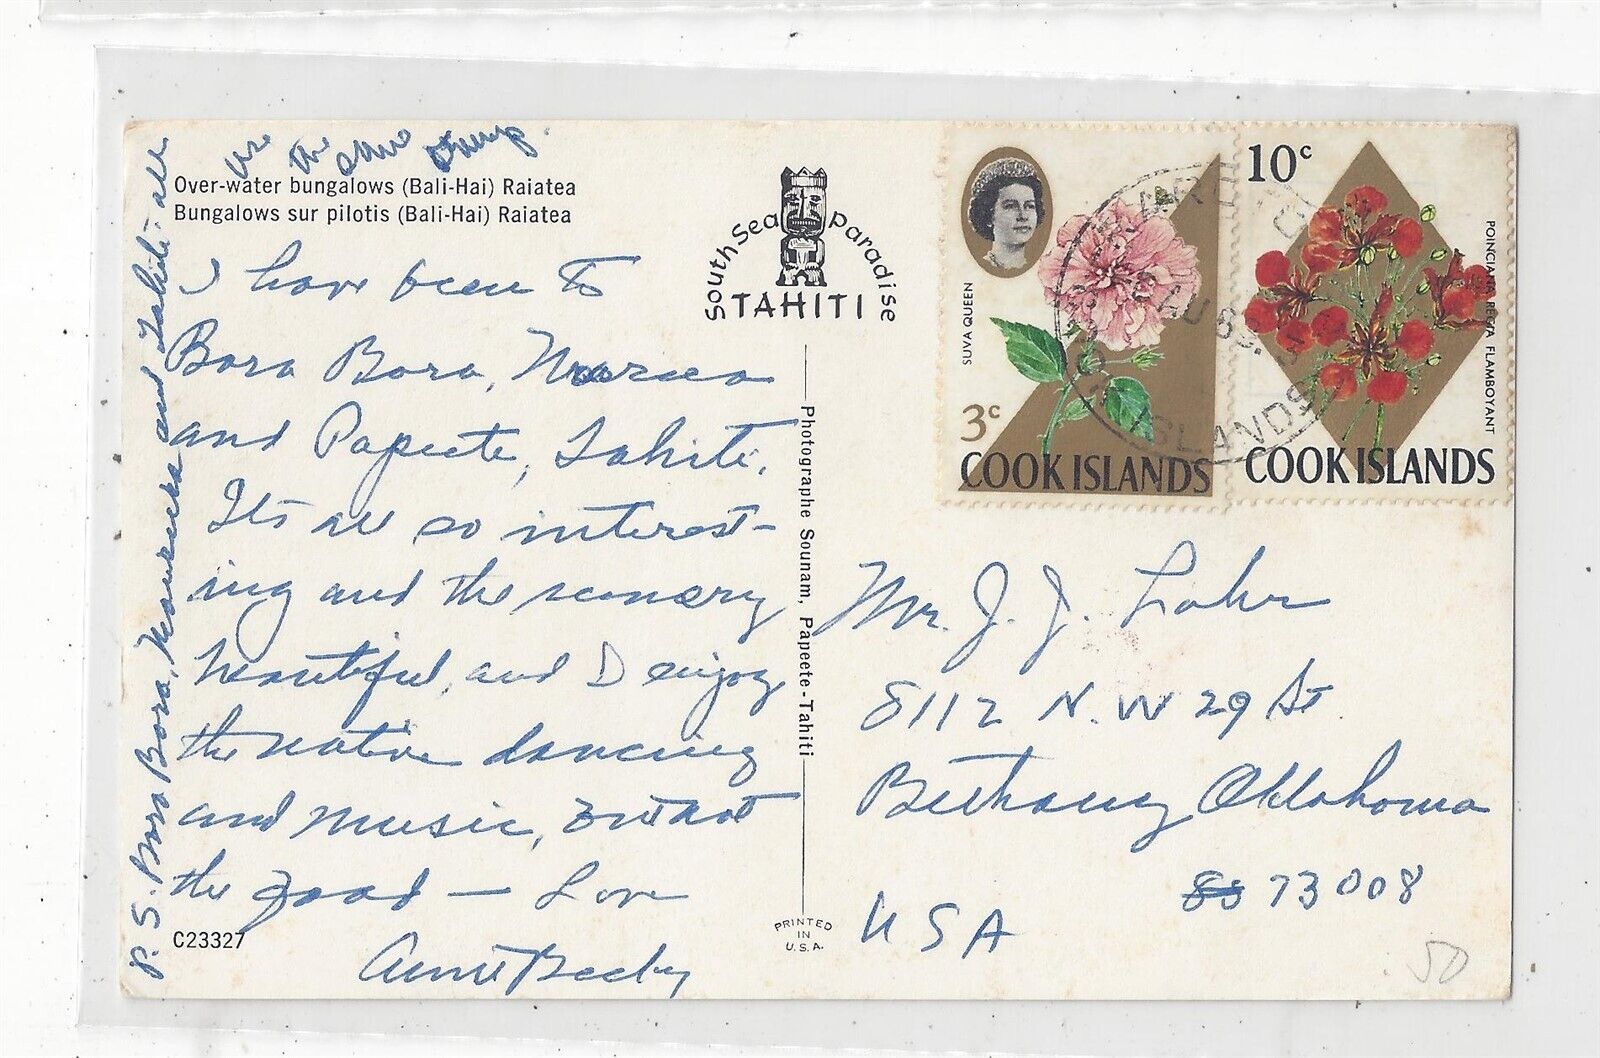 Over-water bungalows (Bali-Hai) Raiatea
Bungalows sur pilotis (Bali-Hai) Raiatea
I have been to
Bora Bora, Moorea
and Papeete, Tahiti.
Its all so interest-
ing and the scenery
beautiful, and I enjoy
the native dancing
and music, but not
the food — Love
Aunt Becky
C23327
P.S. Bora Bora, and Tahiti all
use the same stamp.
South Sea Paradise
TAHITI
Photographe Sounam, Papeete-Tahiti
PRINTED
IN
U.S.A.
SUVA QUEEN
3c
COOK ISLANDS
10c
POINCIANA REGIA FLAMBOYANT
COOK ISLANDS
RAROTONGA
AU 69
ISLANDS
Mr. J. J. Lohr
8112 N.W 29 St
Bethany Oklahoma
73008
USA
50